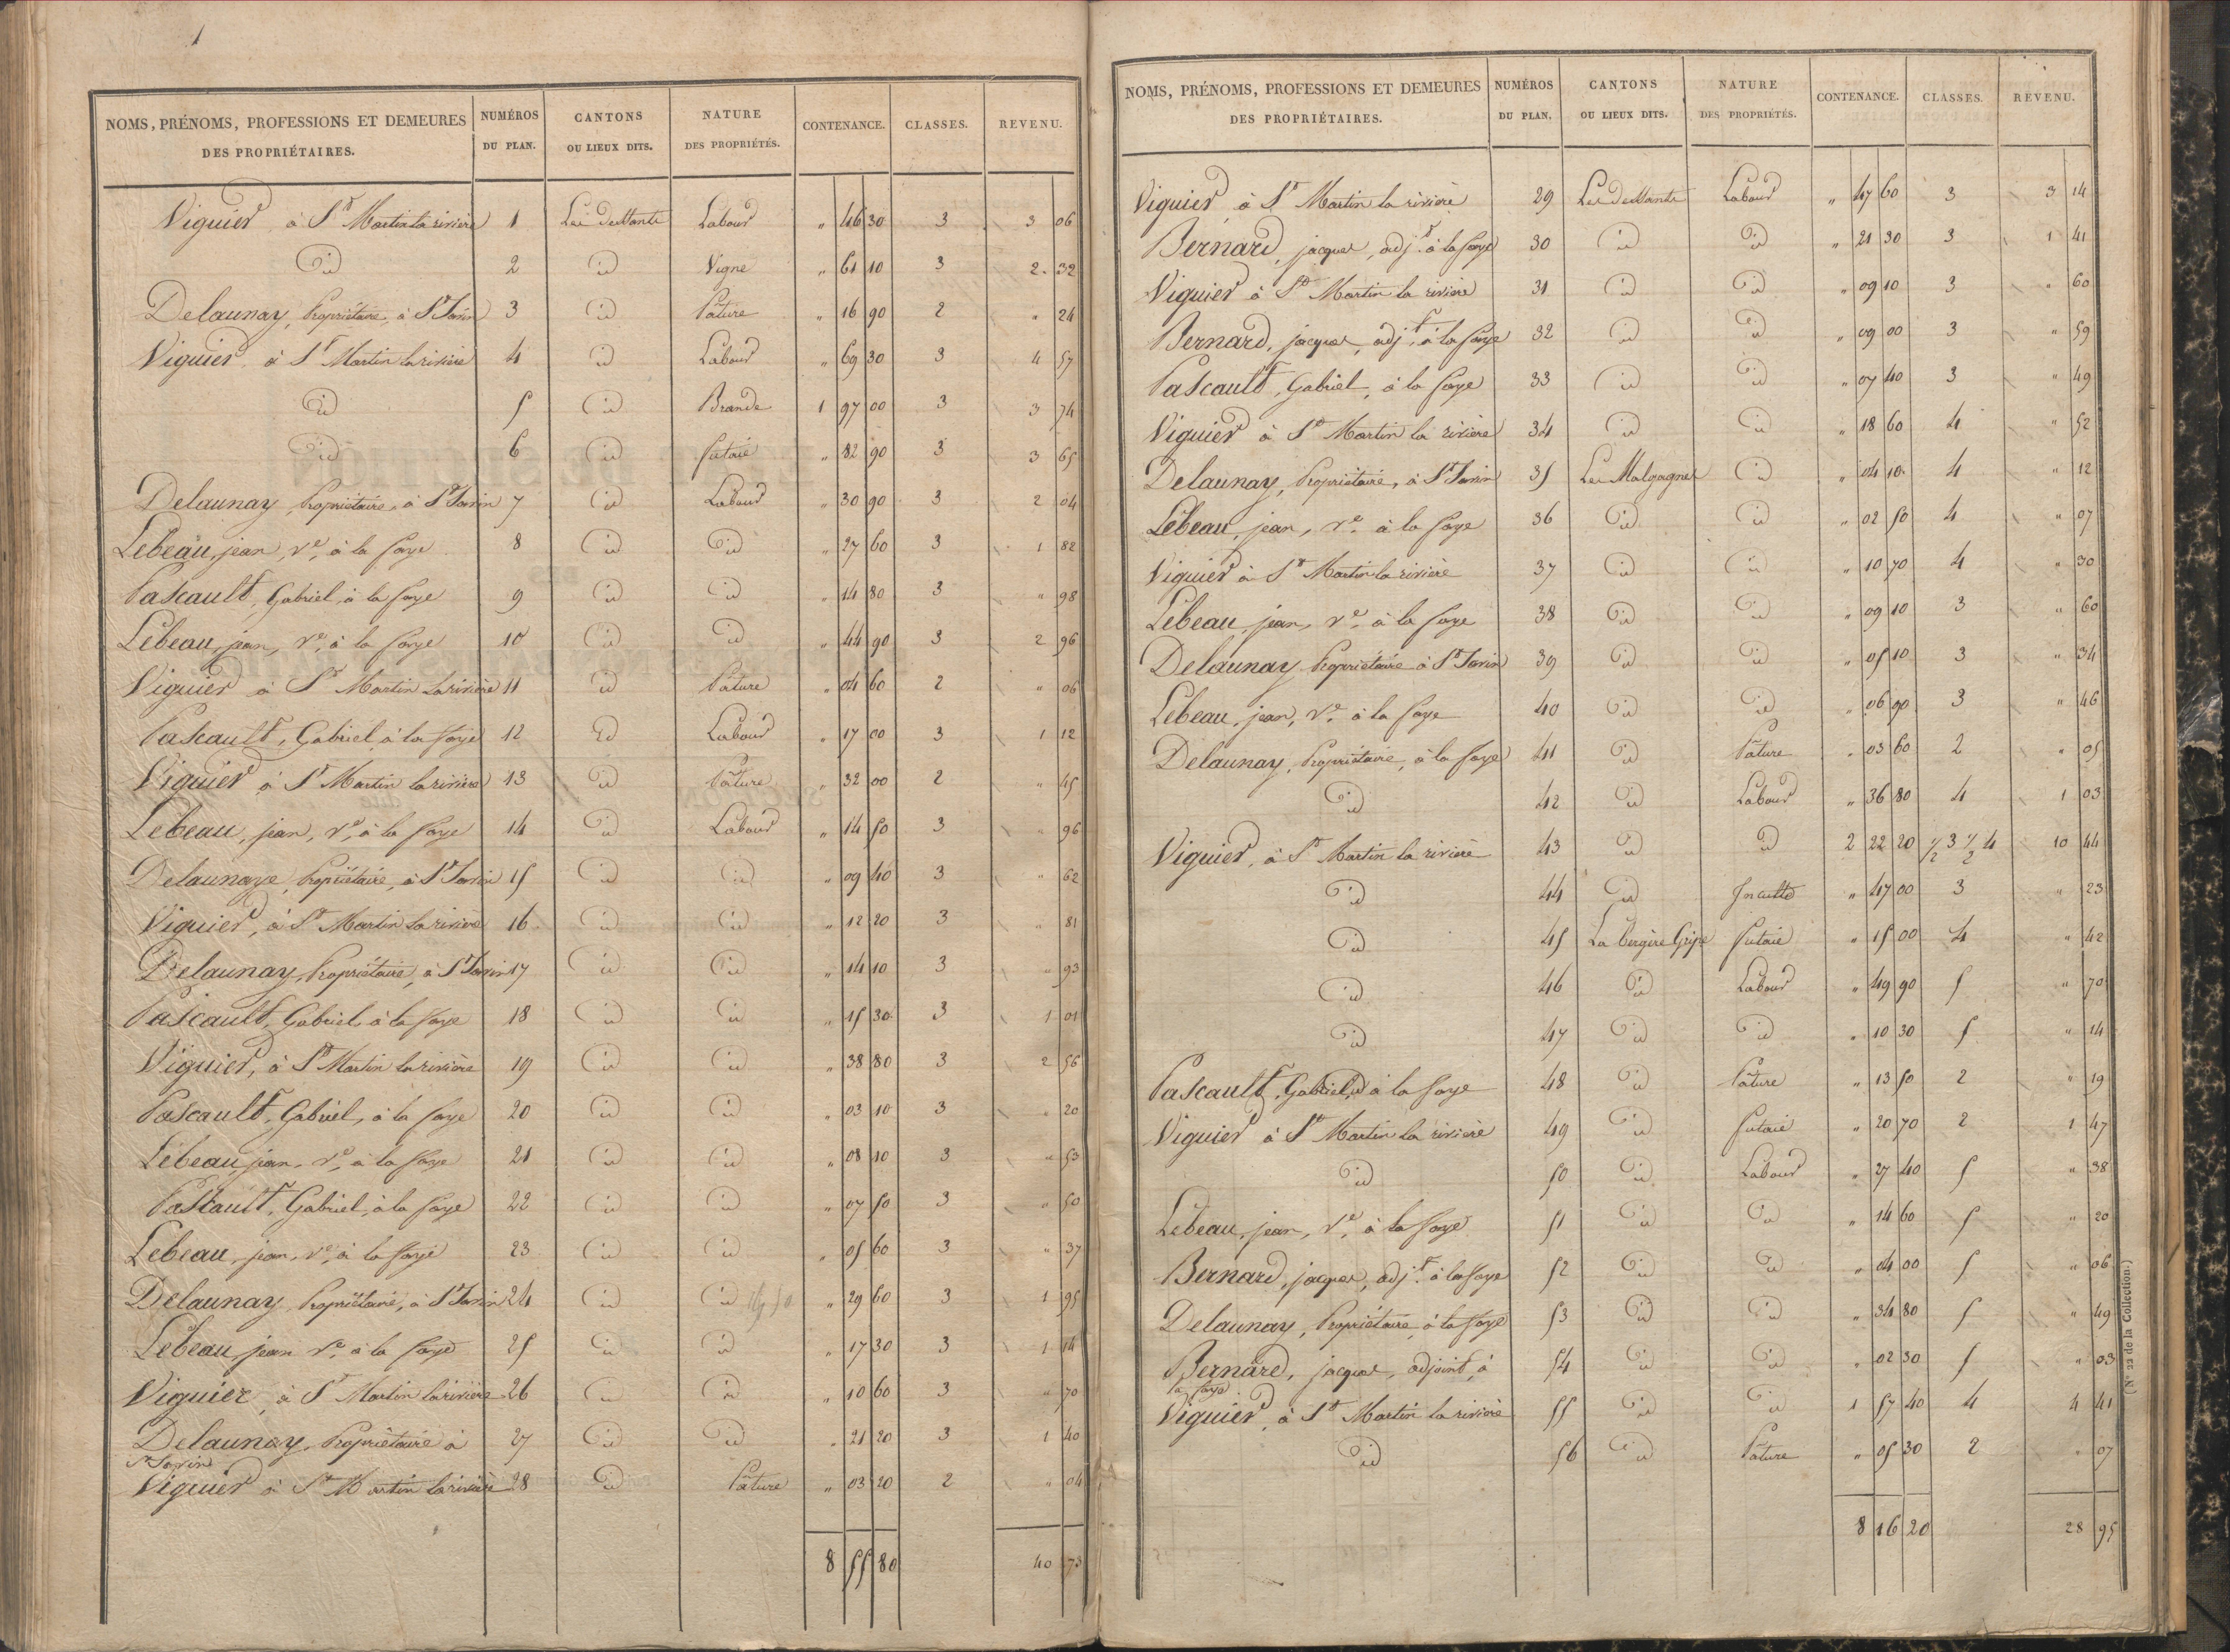 NOMS, PRÉNOMS, PROFESSIONS ET DEMEURES DES PROPRIÉTAIRES. NUMÉROS DU PLAN. CANTONS OU LIEUX DITS. NATURE DES PROPRIÉTÉS. CONTENANCE. CLASSES. REVENU.
Viguier, à St Martin la rivière 1 Labour " 46 30 3 3 06
id 2 id Vigne " 61 10 3 2 32
Delaunay, Propriétaire, à St Savin 3 id Pâture " 16 90 2 " 24
Viguier, à St Martin la rivière 4 id Labour " 69 30 3 4 57
id 5 id Brande 1 97 00 3 3 74
id 6 id futaie " 82 90 3 3 65
Delaunay, Propriétaire, à St Savin 7 id Labour " 30 90 3 2 04
Lebeau, jean, Ve, à la faye 8 id id " 27 60 3 1 82
Pascault, Gabriel, à la faye 9 id id " 14 80 3 " 98
Lebeau, jean, Ve, à la faye 10 id id " 44 90 3 2 96
Viguier à St Martin la rivière 11 id Pature " 04 60 2 " 06
Pascault, Gabriel à la faye 12 id Labour " 17 00 3 1 12
Viguier à St Martin la rivière 13 id Pâture " 32 00 2 " 45
Lebeau, jean, Ve, à la faye 14 id Labour " 14 50 3 " 96
Delaunaye, Propriétaire, à St Savin 15 id id " 09 40 3 " 62
Viguier, à St Martin la rivière 16 id id " 12 20 3 " 81
Delaunay, Propriétaire, à St Savin 17 id id " 14 10 3 " 93
Pascault, Gabriel à la faye 18 id id " 15 30 3 1 01
Viguier, à St Martin la rivière 19 id id " 38 80 3 2 56
Pascault, Gabriel, à la faye 20 id id " 03 10 3 " 20
Lebeau, jean, Ve, à la faye 21 id id " 08 10 3 " 53
Pascault, Gabriel, à la faye 22 id id " 07 50 3 " 50
Lebeau, jean, Ve, à la faye 23 id id " 05 60 3 " 37
Delaunay, Propriétaire, à St Savin 24 id id " 29 60 3 1 95
Lebeau, jean Ve à la faye 25 id id " 17 30 3 1 14
Viguier, à St Martin la rivière 26 id id " 10 60 3 " 70
Delaunay, Propriétaire à 27 id id " 21 20 3 1 40
St Savin
Viguier à St Martin la rivière 28 id Pâture " 03 20 2 " 04
8 55 80 40 73
NOMS, PRÉNOMS, PROFESSIONS ET DEMEURES DES PROPRIÉTAIRES. NUMÉROS DU PLAN. CANTONS OU LIEUX DITS. NATURE DES PROPRIÉTÉS. CONTENANCE. CLASSES. REVENU.
Viguier, à St Martin la rivière 29 Labour " 47 60 3 3 14
Bernard, jacques, adjt à la faye 30 id id " 21 30 3 1 41
Viguier à St Martin la rivière 31 id id " 09 10 3 " 60
Bernard, jacques, adjt à la faye 32 id id " 09 00 3 " 59
Pascault, Gabriel, à la faye 33 id id " 07 40 3 " 49
Viguier à St Martin la rivière 34 id id " 18 60 4 " 52
Delaunay, Propriétaire, à St Savin 35 Les Malgagnes id " 04 10 4 " 12
Lebeau, jean, Ve à la faye 36 id id " 02 50 4 " 07
Viguier à St Martin la rivière 37 id id " 10 70 4 " 30
Lebeau, jean, Ve à la faye 38 id id " 09 10 3 " 60
Delaunay Propriétaire à St Savin 39 id id " 05 10 3 " 34
Lebeau, jean, Ve à la faye 40 id id " 06 90 3 " 46
Delaunay, Propriétaire, à la faye 41 id Pâture " 03 60 2 " 05
id 42 id Labour " 36 80 4 1 03
Viguier, à St Martin la rivière 43 id id 2 22 20 1/2 3 1/2 4 10 44
id 44 id Inculte " 47 00 3 " 23
id 45 La Bergère Gripe futaie " 15 00 4 " 42
id 46 id Labour " 49 90 5 " 70
id 47 id id " 10 30 5 " 14
Pascault, Gabriel, à la faye 48 id Pâture " 13 50 2 " 19
Viguier à St Martin la rivière 49 id futaie " 20 70 2 1 47
id 50 id Labour " 27 40 5 " 38
Lebeau, jean, Ve, à la faye 51 id id " 14 60 5 " 20
Bernard, jacques, adjt à la faye 52 id id " 04 00 5 " 06
Delaunay, Propriétaire, à la faye 53 id id " 34 80 5 " 49
Bernard, jacques, adjoint, à 54 id id " 02 30 5 " 03
la faye
Viguier, à St Martin la rivière 55 id id 1 57 40 4 4 41
id 56 id Pâture " 05 30 2 " 07
8 16 20 28 95
(N° 22 de la Collection.)